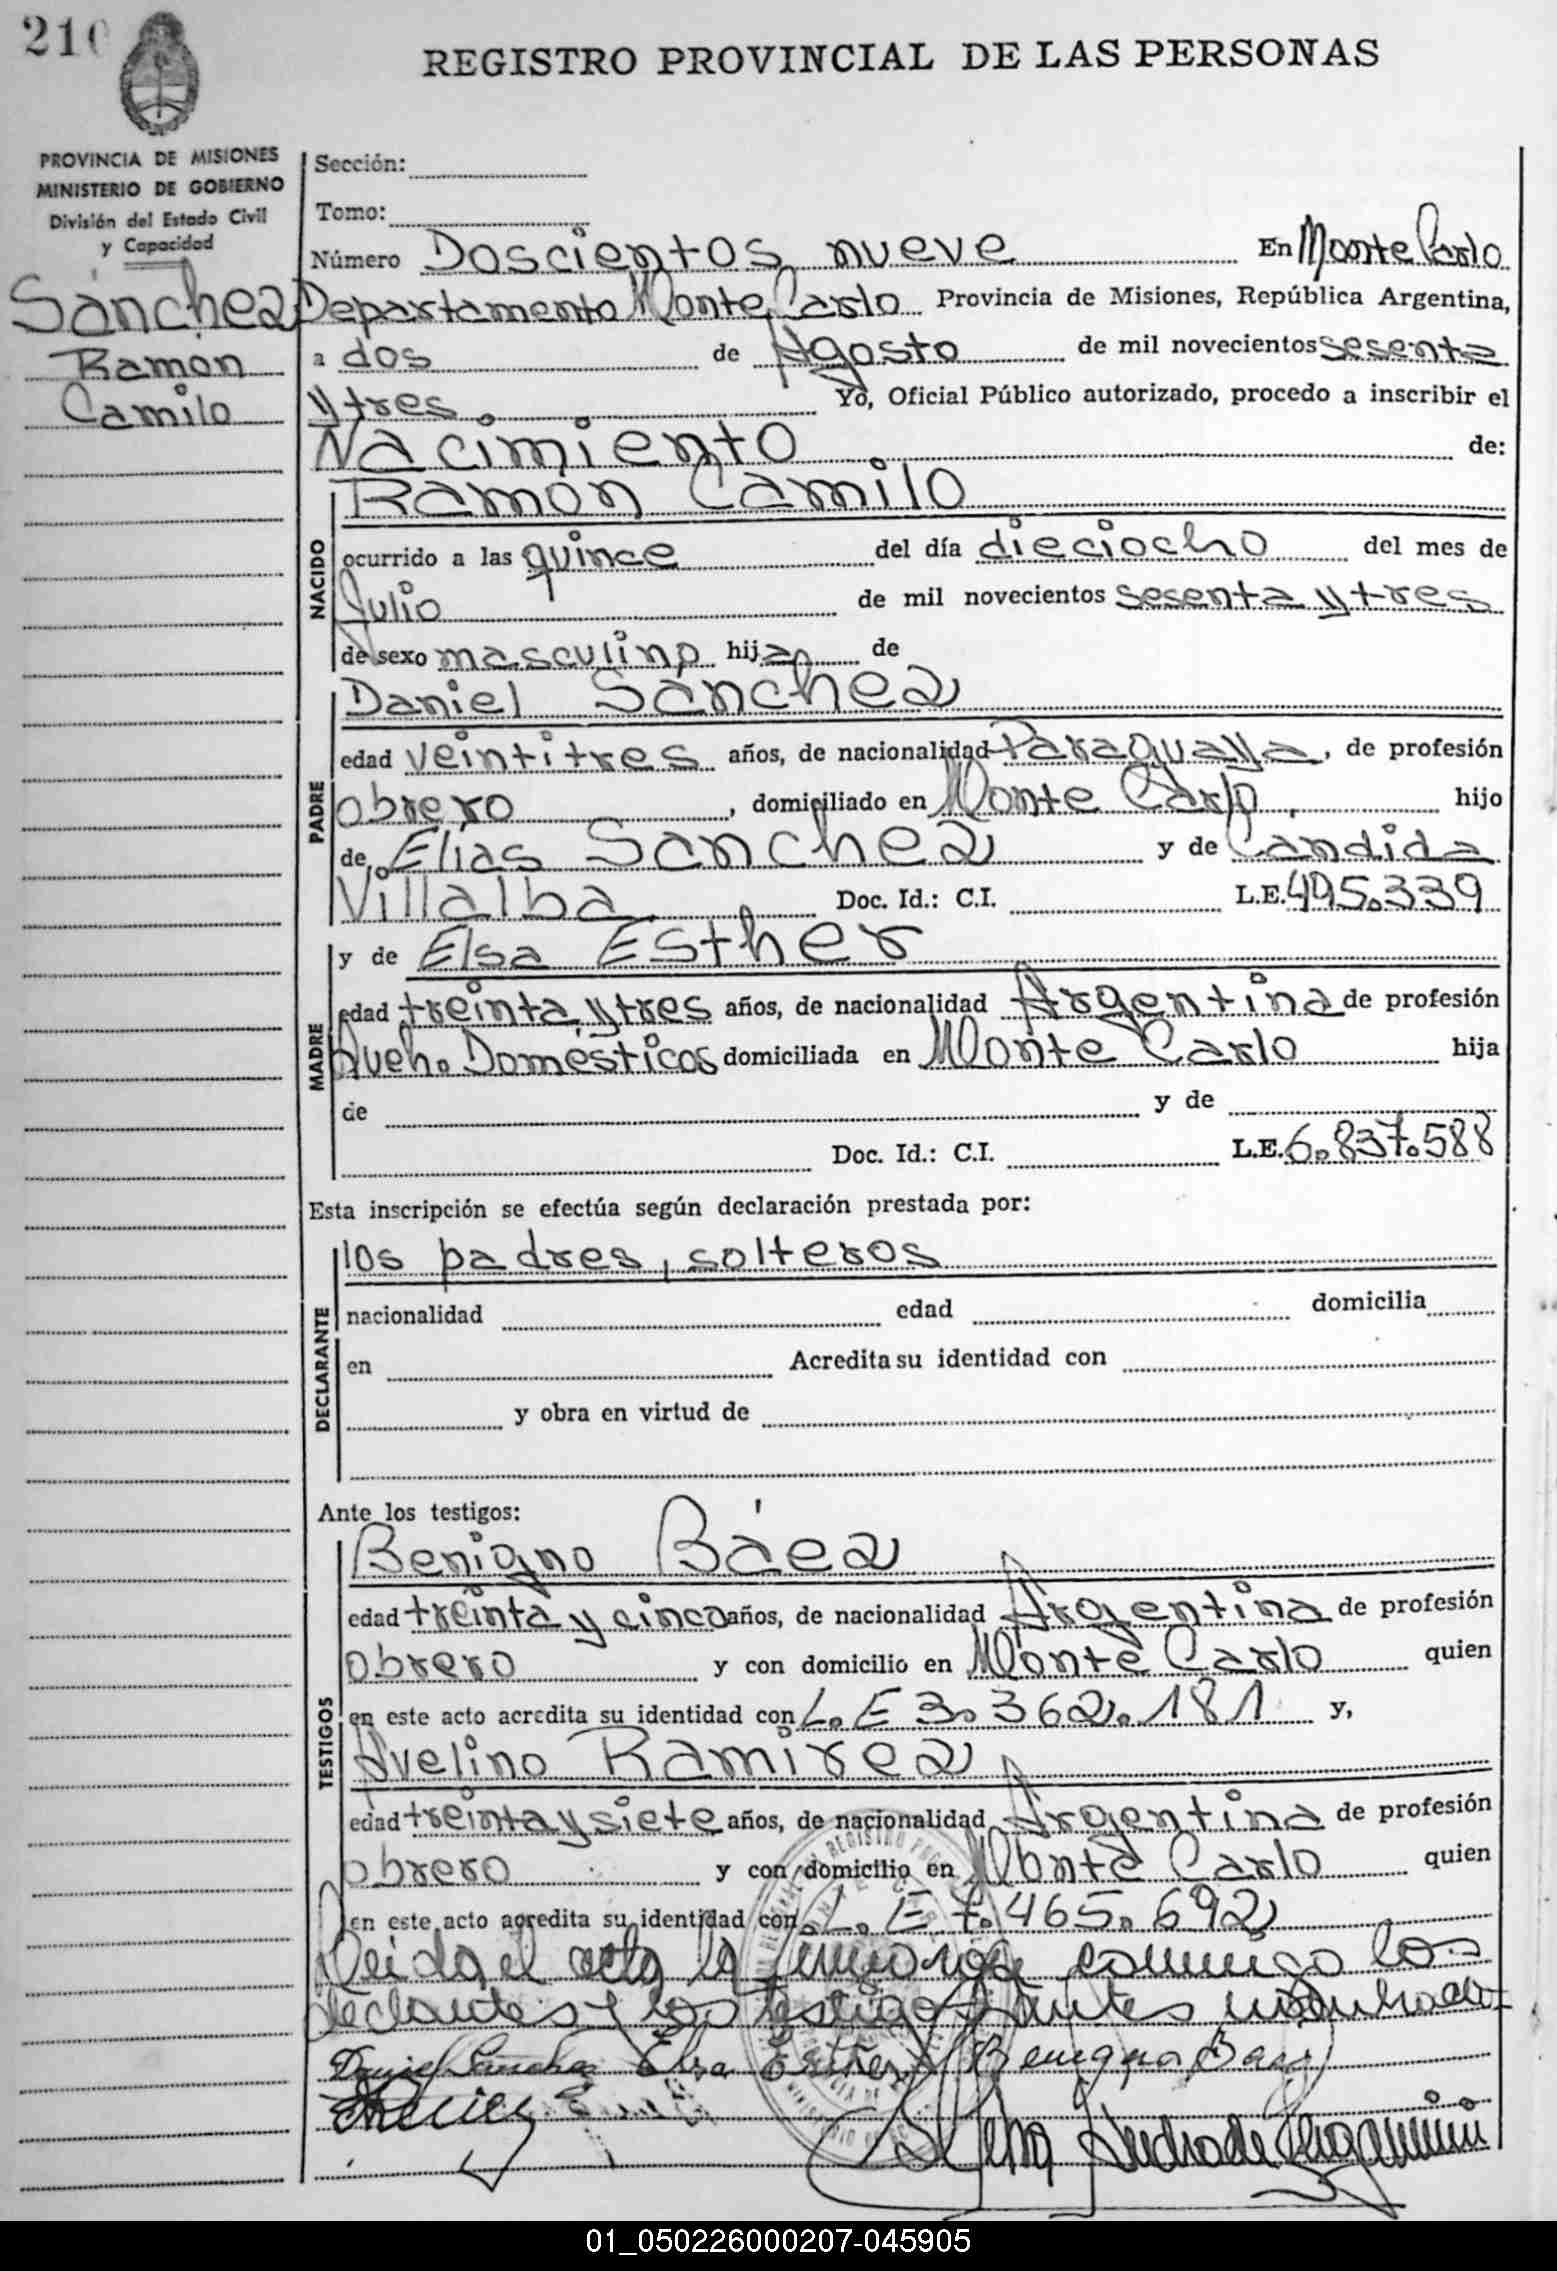 210
REGISTRO PROVINCIAL DE LAS PERSONAS
PROVINCIA DE MISIONES
MINISTERIO DE GOBIERNO
División del Estado Civil
y Capacidad
Sánchez
Ramón
Camilo
Sección:
Tomo:
Número Doscientos nueve En Monte Carlo
Departamento Monte Carlo Provincia de Misiones, República Argentina,
a dos de Agosto de mil novecientos sesenta
y tres. Yo, Oficial Público autorizado, procedo a inscribir el
Nacimiento de:
NACIDO
Ramón Camilo
ocurrido a las quince del día dieciocho del mes de
Julio de mil novecientos sesenta y tres
de sexo masculino hijo de
PADRE
Daniel Sánchez
edad veintitres años, de nacionalidad Paraguaya, de profesión
obrero, domiciliado en Monte Carlo, hijo
de Elías Sánchez y de Candida
Villalba Doc. Id.: C.I. L.E. 495.339
MADRE
y de Elsa Esther
edad treinta y tres años, de nacionalidad Argentina de profesión
Queh. Domésticos domiciliada en Monte Carlo hija
de y de
Doc. Id.: C.I. L.E. 6.837.588
Esta inscripción se efectúa según declaración prestada por:
DECLARANTE
los padres, solteros
nacionalidad edad domicilia
en Acredita su identidad con
y obra en virtud de
Ante los testigos:
TESTIGOS
Benigno Báez
edad treinta y cinco años, de nacionalidad Argentina de profesión
obrero y con domicilio en Monte Carlo quien
en este acto acredita su identidad con L. E 3.362.181 y,
Avelino Ramirez
edad treinta y siete años, de nacionalidad Argentina de profesión
obrero y con domicilio en Monte Carlo quien
en este acto acredita su identidad con L. E 7.465.692
Leida el acta la firmaron conmigo los
declarantes y los testigos antes nombrados
Daniel Sanchez Elsa Esther Benigno Baez
01_050226000207-045905